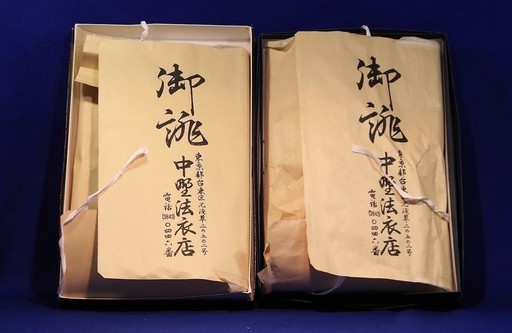 御誂
東京都台東区元浅草二の五の二号
中野法衣店
電話(843)〇四四六番
御誂
東京都台東区元浅草二の五の二号
中野法衣店
電話(843)〇四四六番